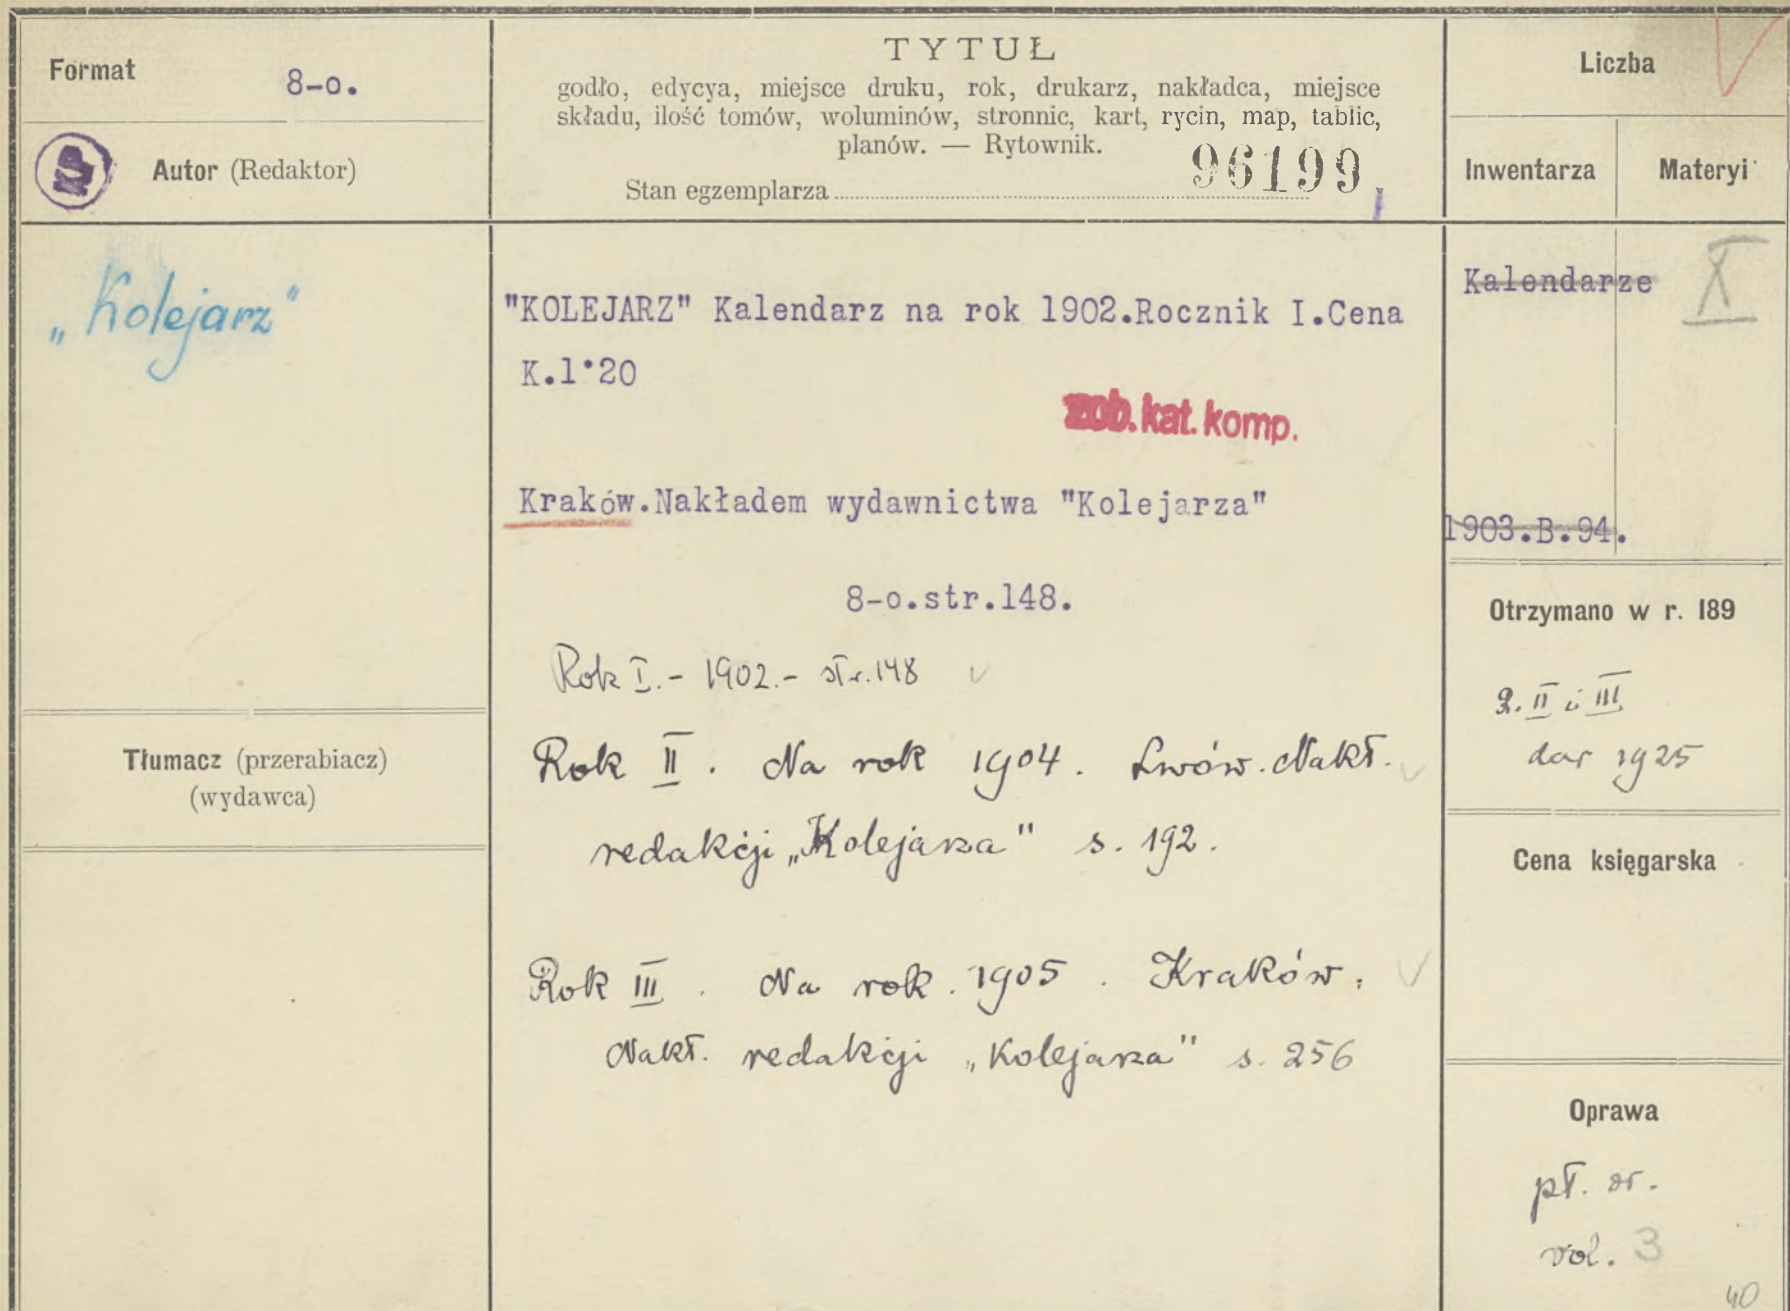 Format 8-o.
Autor (Redaktor)
TYTUŁ
godło, edycya, miejsce druku, rok, drukarz, nakładca, miejsce
składu, ilość tomów, woluminów, stronnic, kart, rycin, map, tablic,
planów. — Rytownik.
Stan egzemplarza 96199
Liczba
Inwentarza Materyi
„Kolejarz"
"KOLEJARZ" Kalendarz na rok 1902.Rocznik I.Cena
K.1·20
zob. kat. komp.
Kraków.Nakładem wydawnictwa "Kolejarza"
8-o.str.148.
Rok I.- 1902.- str.148
Rok II. Na rok 1904. Lwów. Nakł.
redakcji „Kolejarza" s. 192.
Rok III. Na rok 1905. Kraków.
Nakł. redakcji „Kolejarza" s. 256
Tłumacz (przerabiacz)
(wydawca)
Kalendarze X
1903.B.94.
Otrzymano w r. 189
R. II i III
dar 1925
Cena księgarska
Oprawa
pł.
vol. 3
40